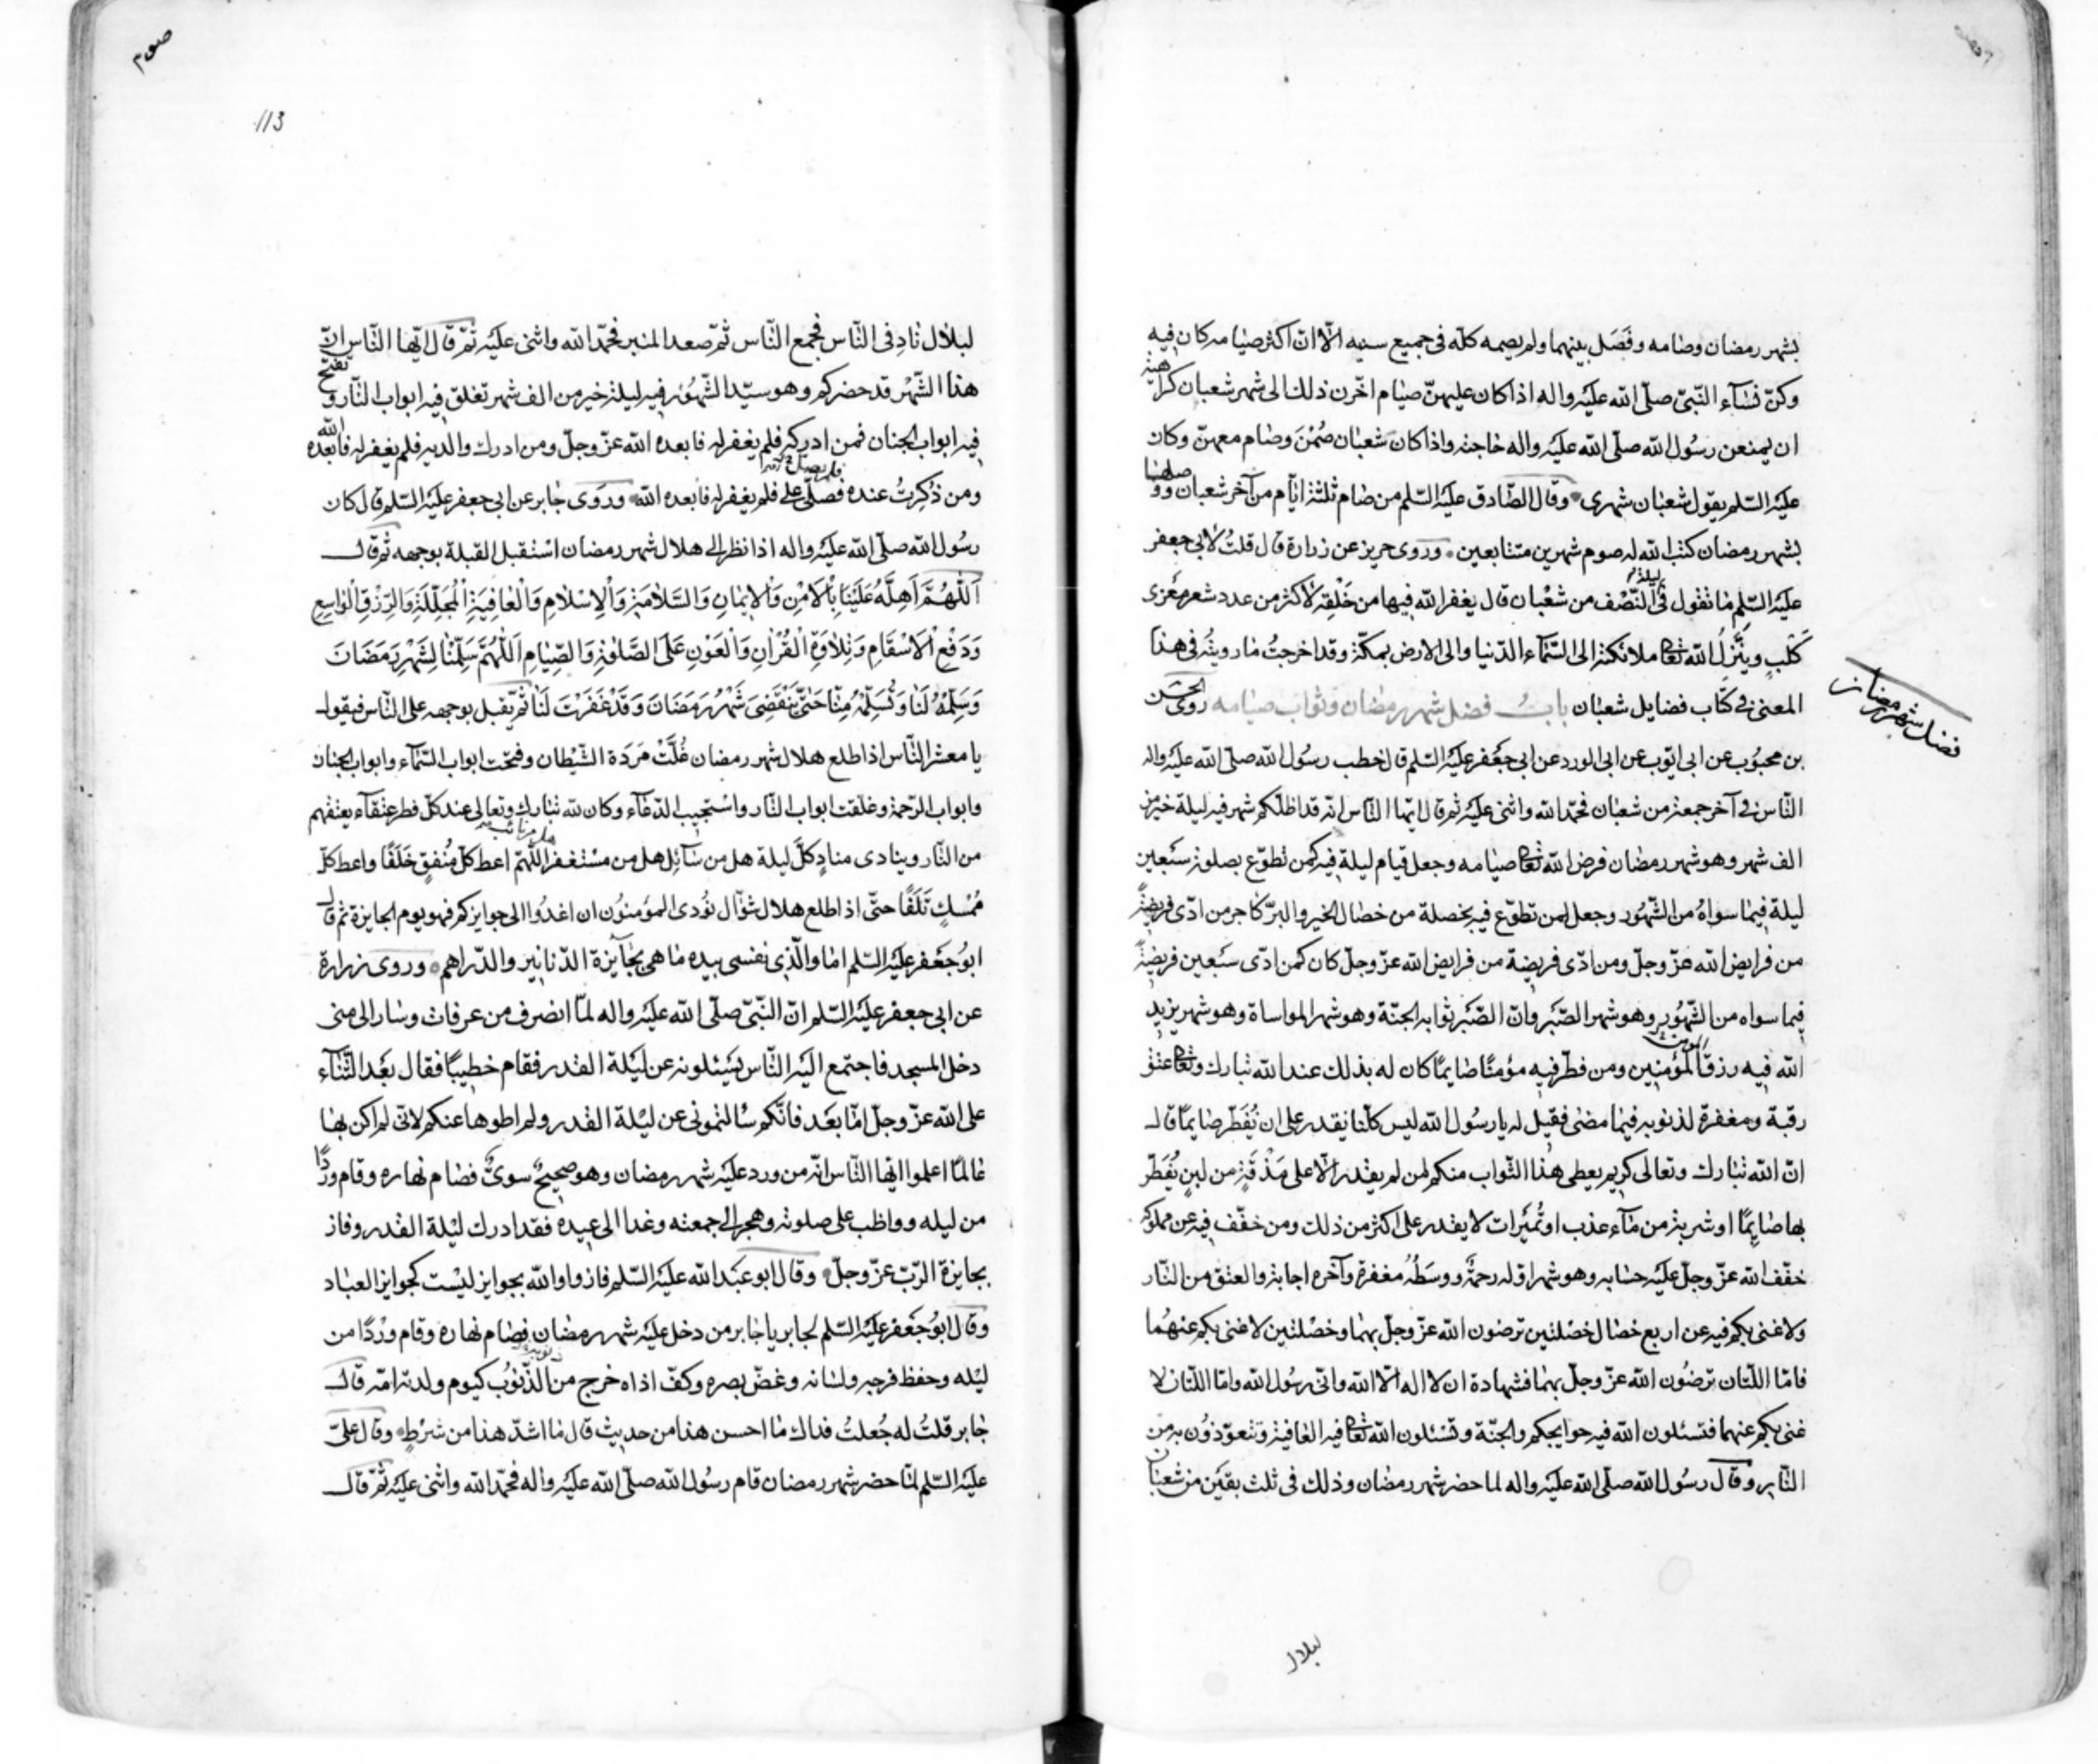 بشهر رمضان وصامه وفَصَل بينهما ولم يصمه كله فى جميع سنيه الّا انّ اكثر صيامه كان فيه
وكنّ نسٰآء النّبىّ صلّى الله عليه واله اذا كان عليهنّ صيٰام اخّرن ذلك الى شهر شعبان كراهية
ان يمنعن رسُول الله صلّى الله عليه واله حاجته واذا كان شعبٰان صُمْنَ وصٰام معهنّ وكان
عليه السّلم يقول شعبٰان شهرى وقال الصّادق عليه السّلم من صٰام ثلثة ايّام من آخر شعبان ووصلها
بشهر رمضان كتب الله له صوم شهرين متتابعين وروى حريز عن زرارة قال قلتُ لابى جعفر
عليه السّلم مٰا تقول فى ليلة النّصف من شعْبان قال يغفر الله فيها من خَلْقِه لأكثر من عدد شعر مِعْزى
كَلْبٍ ويُنَزِلُ الله تعالى ملائكته الى السّمٰآء الدّنيا والى الارض بمكّة وقد اخرجتُ مٰا رويته فى هذا
المعنى فى كتاب فضايل شعبٰان بابُ فضل شهر رمضان وثواب صيامه روى الحسن
فضل شهر رمضان
بن محبوُب عن ابى ايّوب عن ابى الورد عن ابى جعَفر عليه السّلم قال خطب رسُول الله صلّى الله عليه واله
النّاس فى آخر جمعة من شعبٰان فحمّد الله واثنى عليه ثم قال ايّها النّاس انّه قد اظلّكم شهر فيه ليلة خير من
الف شهر وهو شهر رمضان فرض الله تعالى صيٰامه وجعل قيام ليلة فيه كمن تطوّع بصلوة سَبْعين
ليلة فيمٰا سواهُ من الشّهوُر وجعل لمن تطوّع فيه بخصلة من خصٰال الخير والبرّ كاجر من ادّى فريضةً
من فرايض الله عزّ وجلّ ومن ادّى فريضة من فرايض الله عزّ وجلّ كان كمن ادّى سَبعين فريضةً
فيما سواه من الشّهُور وهو شهر الصَّبَر وانّ الصَّبَر ثوابه الجنّة وهو شهر المواساة وهو شهر يزيد
الله فيه رزق المؤمنين ومن فطّر فيه مؤمنًا صٰايمًا كان له بذلك عند الله تبارك وتعالى عتق
رقبة ومغفرة لذنوبه فيمٰا مضى فقيل له يا رسُول الله ليس كلّنا يقدر على ان يُفَطِّر صٰايمًا قال
انّ الله تبٰارك وتعالى كريم يعطى هذا الثّواب منكم لمن لم يقدر الّا على مَذْقَةٍ من لبنٍ يُفَطِّر
بها صٰايمًا او شربة من مٰآء عذب او تُمَيْرات لا يقدر على اكثر من ذلك ومن خفّف فيه عن مملوكه
خفّف الله عزّ وجلّ عليه حسٰابه وهو شهر اوّله رحمةٌ ووسَطُهُ مغفرة وآخره اجابة والعتق من النّار
ولا غنى بكم فيه عن اربع خصٰال خصْلتين ترضون الله عزّ وجلّ بهمٰا وخصْلتين لا غنى بكم عنهُما
فامّا اللّتان ترضُون الله عزّ وجلّ بهمٰا فشهادة ان لا اله الّا الله وانّى رسُول الله وامّا اللّتان لا
غنى بكم عنهما فتسئلون الله فيه حوايجكم والجنّة وتسْئلون الله تعالى فيه العٰافية وتتعوّذوُن به من
النّار وقال رسُول الله صلّى الله عليه واله لما حضر شهر رمضان وذلك فى ثلث بقيَن من شعبٰان
لبلال
صوم
113
لبلال نٰادِ فى النّاس فجمع النّاس ثمّ صعد المنبر فحمّد الله واثنى عليه ثمّ قال ايّها النّاس انّ
هذا الشّهْر قد حضركم وهو سيّد الشّهُور فيه ليلة خير من الف شهر تغلق فيه ابواب النّار وتفتح
فيه ابواب الجنان فمن ادركه فلم يغفر له فابعده الله عزّ وجلّ ومن ادرك والديه فلم يغفر له فابعده الله
ومن ذُكِرتُ عنده فصلّى علىّ فلم يغفر له فابعده الله وروَى جٰابر عن ابى جعفر عليه السّلم قال كان
رسُول الله صلّى الله عليه واله اذا نظر الى هلال شهر رمضان استقبل القبلة بوجهه ثم قال
اَللّٰهُمَّ اَهِلَّهُ عَلَيْنَا بِالْاَمْنِ وَالْايمٰانِ وَالسَّلٰامَةِ وَالْاِسْلٰامِ وَالْعٰافِيَةِ الْمُجَلِّلَةِ وَالرِّزْقِ الْوٰاسِعِ
وَدَفْعِ الْاَسْقٰامِ وَتِلٰاوَةِ الْقُرْاٰنِ وَالْعَوْنِ عَلَى الصَّلٰوةِ وَالصِّيٰامِ اَللّٰهُمَّ سَلِّمْنٰا لِشَهْرِ رَمَضٰانَ
وَسَلِّمْهُ لَنٰا وَتَسَلَّمْهُ مِنّٰا حَتّٰى يَنْقَضِىَ شَهْرُ رَمَضٰانَ وَقَدْ غَفَرْتَ لَنٰا ثمّ يقبل بوجهه على النّاس فيقول
يا معشر النّٰاس اذا طلع هلال شهر رمضان غُلَّتْ مَرَدَة الشّيْطان وفتحت ابواب السّمٰآء وابواب الجنان
وابواب الرّحمة وغلّقت ابواب النّار واسْتجيب الدّعٰآء وكان لله تبٰارك وتعالى عند كلّ فطر عتقآء يعتقهم
من النّار وينادى منادٍ كلَّ ليلة هل من سٰآئِل هل من مسْتغفر اللّهمّ اعط كلّ مُنفقٍ خَلَفًا واعط كلّ
مُمْسِكٍ تَلَفًا حتّى اذا طلع هلال شوّال نوُدى المؤمنوُن ان اغدُوا الى جوايزكم فهو يوم الجايزة ثم قال
ابوُ جعَفر عليه السّلم امٰا والّذى نفسى بيده مٰا هى بجٰآيزة الدّنانير والدّراهم وروى زرارة
عن ابى جعفر عليه السّلم انّ النّبّىّ صلّى الله عليه واله لمّا انصرف من عرفات وسٰار الى منى
دخل المسجد فاجتمع اليه النّاس يسَئلونه عن ليَلة القدر فقام خطيبًا فقال بعَد الثّنٰآء
على الله عزّ وجلّ امّا بعَد فانّكم سٰالتمونى عن ليْلة القدر ولم اطوها عنكم لانّى لم اكن بهٰا
عٰالمًا اعلموا ايّها النّاس انّه من ورد عليه شهر رمضان وهو صحيحٌ سوىّ فصٰام نهٰاره وقام وردًا
من ليله وواظب على صلوته وهجر الى جمعته وغدا الى عيده فقد ادرك ليْلة القدر وفاز
بجايزة الرّبّ عزّ وجلّ وقال ابو عبَد الله عليه السّلم فازوا والله بجوايز ليْست كجوايز العبٰاد
وقال ابوُ جعَفر عليه السّلم لجابر يا جٰابر من دخل عليه شهر رمضان فصٰام نهٰاره وقام وِرْدًا من
ليْله وحفظ فرجه ولسٰانه وغضّ بصره وكفّ اذاه خرج من الذّنوُب كيوم ولدته امّه قال
جٰابر قلتُ له جُعلتُ فداك مٰا احسن هذا من حديث قال مٰا اشدّ هذا من شرْطٍ وقال علىّ
عليه السّلم لمّا حضر شهر رمضان قام رسُول الله صلّى الله عليه واله فحمّد الله واثنى عليه ثمّ قال